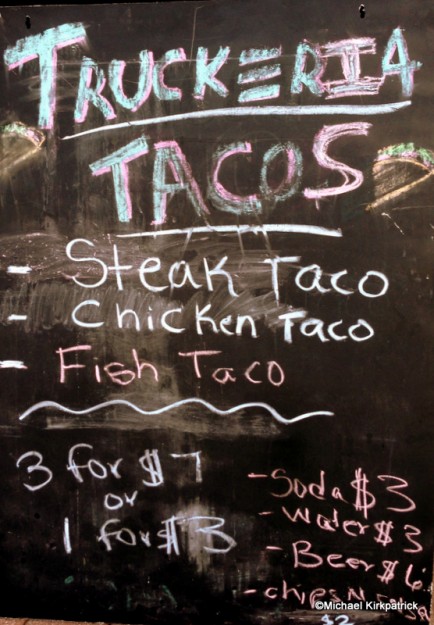 TRUCKERIA
TACOS
- Steak Taco
- Chicken Taco
- Fish Taco
3 for $7
or
1 for $3
- Soda $3
- Water $3
- Beer $6
- chips N Salsa
$2
©Michael Kirkpatrick